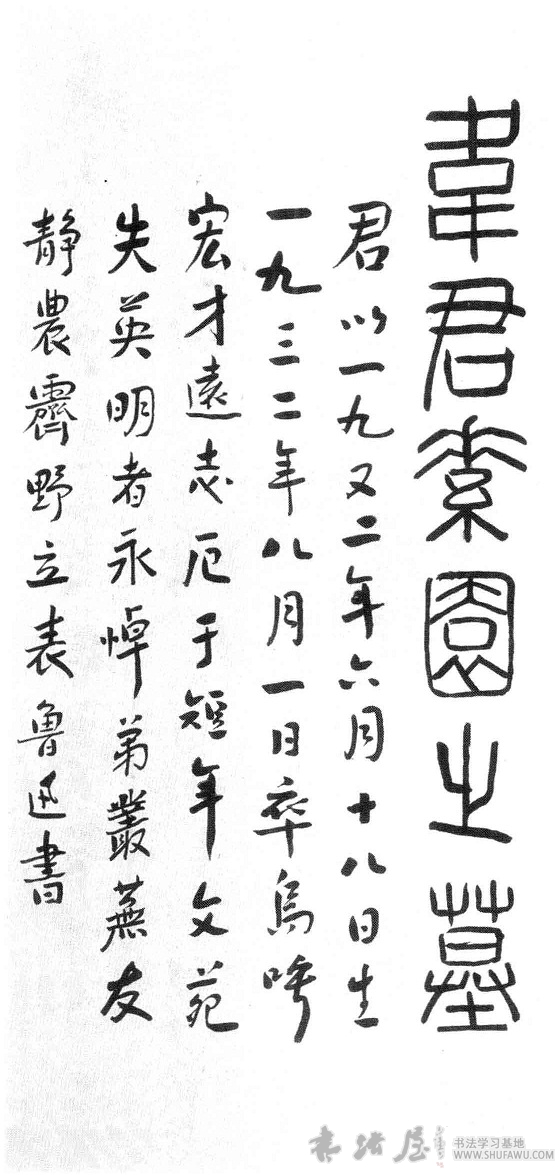 韋君素園之墓
君以一九又二年六月十八日生
一九三二年八月一日卒烏呼
宏才遠志厄于短年文苑
失英明者永悼弟叢蕪友
静農霽野立表魯迅書
书法屋
书法学习基地
WWW.SHUFAWU.COM